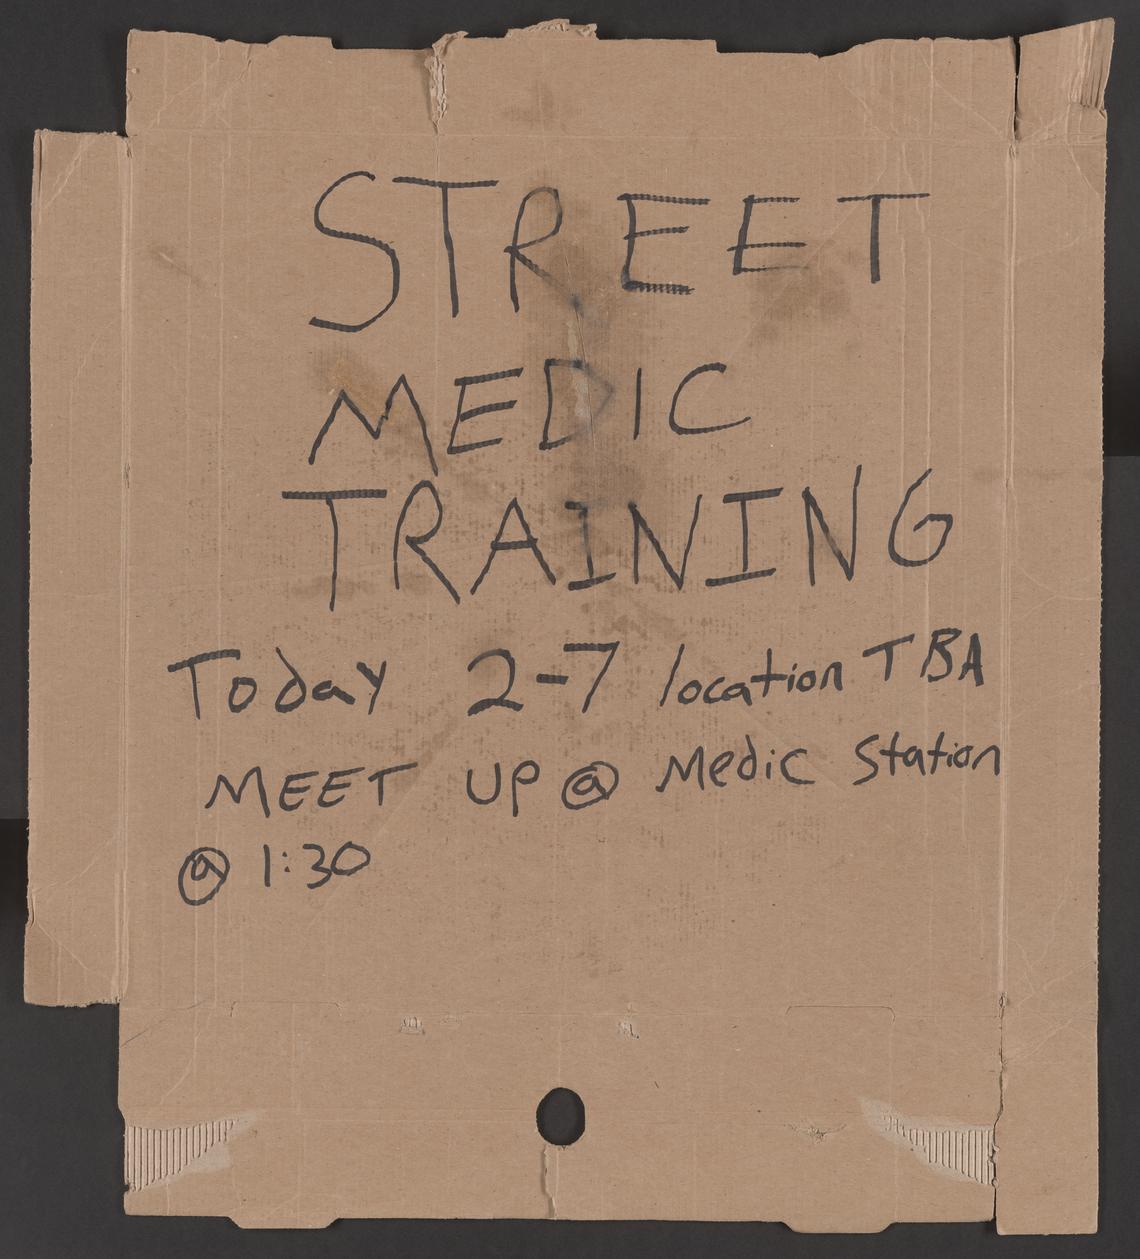 STREET
MEDIC
TRAINING
Today 2-7 location TBA
MEET UP @ Medic Station
@ 1:30